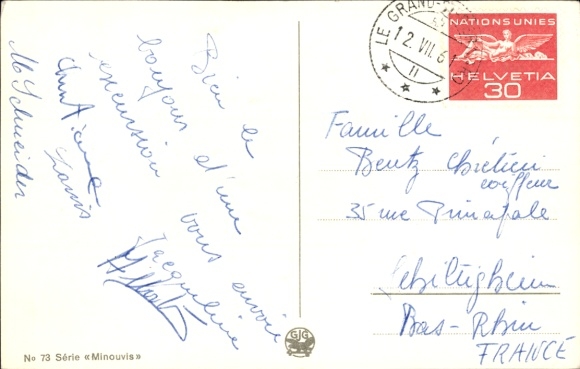 Bien le
bonjour d'une
excursion vous envoie
Jacqueline
Christiane
Louis
M Schneider
LE GRAND-
12.VII.6
11
NATIONS UNIES
HELVETIA
30
Famille
Bentz Chrétien
coiffeur
35 rue Principale
Schiltigheim
Bas-Rhin
FRANCE
GJG
No 73 Série «Minouvis»